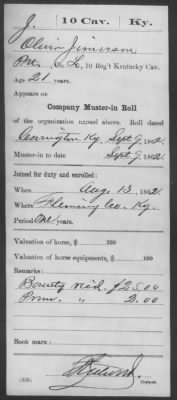 J. 10 Cav. Ky.
Oliver Jimerson
Pvt., Co. L, 10 Reg't Kentucky Cav.
Age 21 years.
Appears on
Company Muster-in Roll
of the organization named above. Roll dated
Covington Ky. Sept 9, 1862.
Muster-in to date Sept 9, 1862.
Joined for duty and enrolled:
When Aug. 13, 1862
Where Fleming Co. Ky.
Period One years.
Valuation of horse, $ 100
Valuation of horse equipments, $ 100
Remarks:
Bounty rec'd. $25.00
Prem. " 2.00
Book mark:
Copyist.